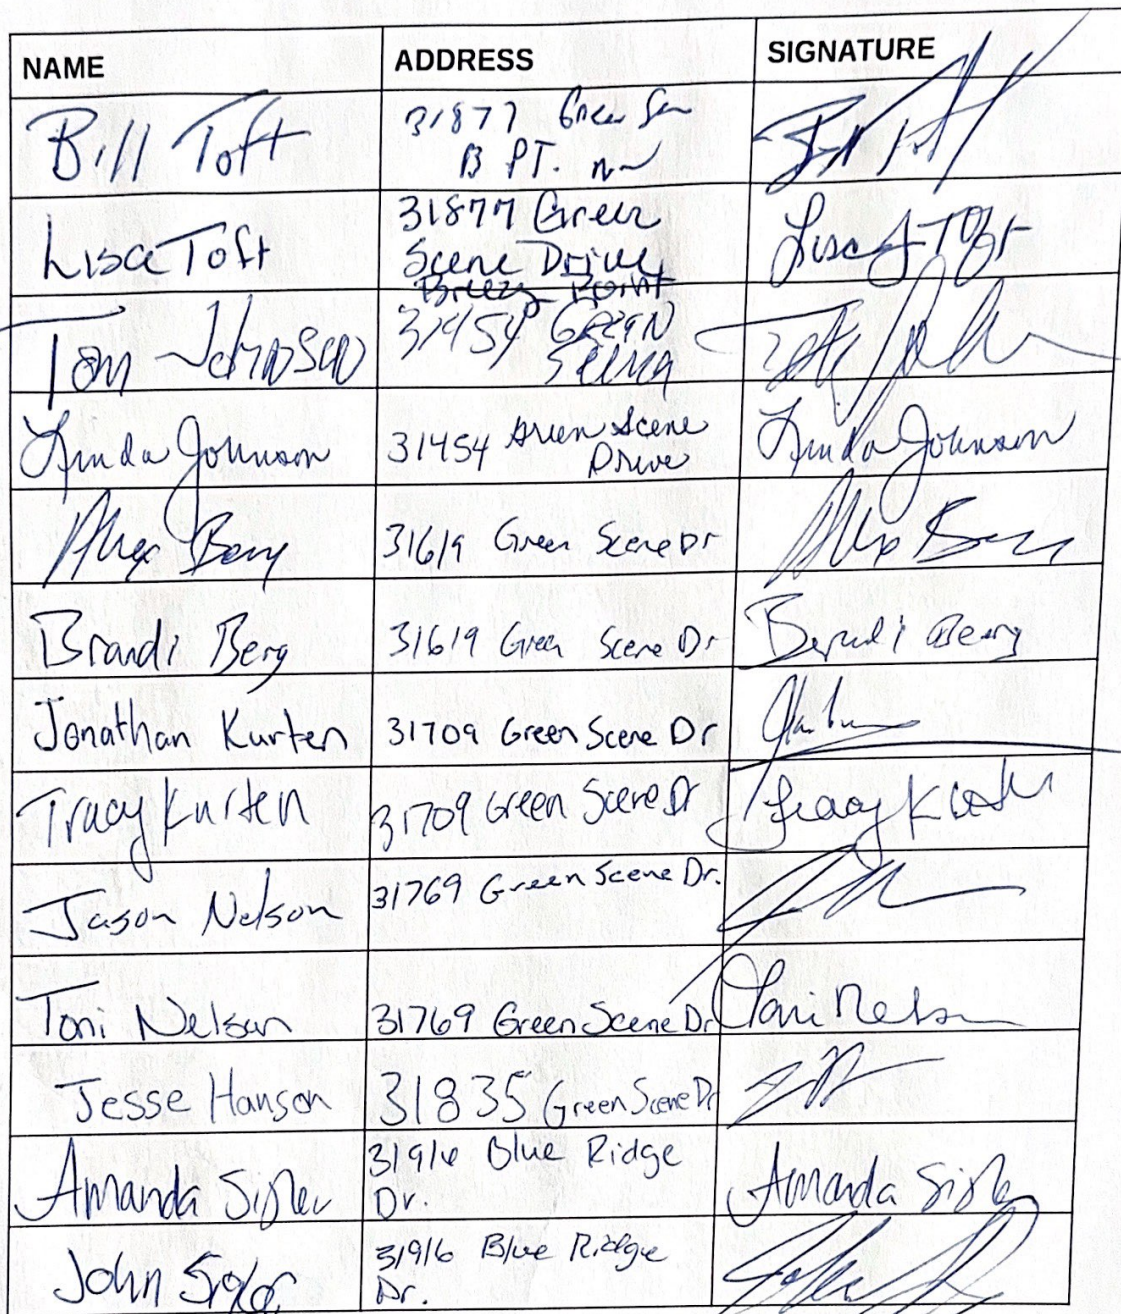 NAME ADDRESS SIGNATURE
Bill Toft 31877 Green
B PT.
Lisa Toft 31877 Green Lisa J Toft
Scene Drive
Breezy Point
Tom Johnson 31454 Green
Linda Johnson 31454 Green Scene Linda Johnson
Drive
Berg 31619 Green Scene Dr
Brandi Berg 31619 Green Scene Dr Brandi Berg
Jonathan Kurten 31709 Green Scene Dr
Tracy Kurten 31709 Green Scene Dr Tracy
Jason Nelson 31769 Green Scene Dr.
Toni Nelson 31769 Green Scene Dr Toni Nelson
Jesse Hanson 31835 Green Scene Dr
Amanda Sigler 31916 Blue Ridge Amanda Sigler
Dr.
John 31916 Blue Ridge
Dr.